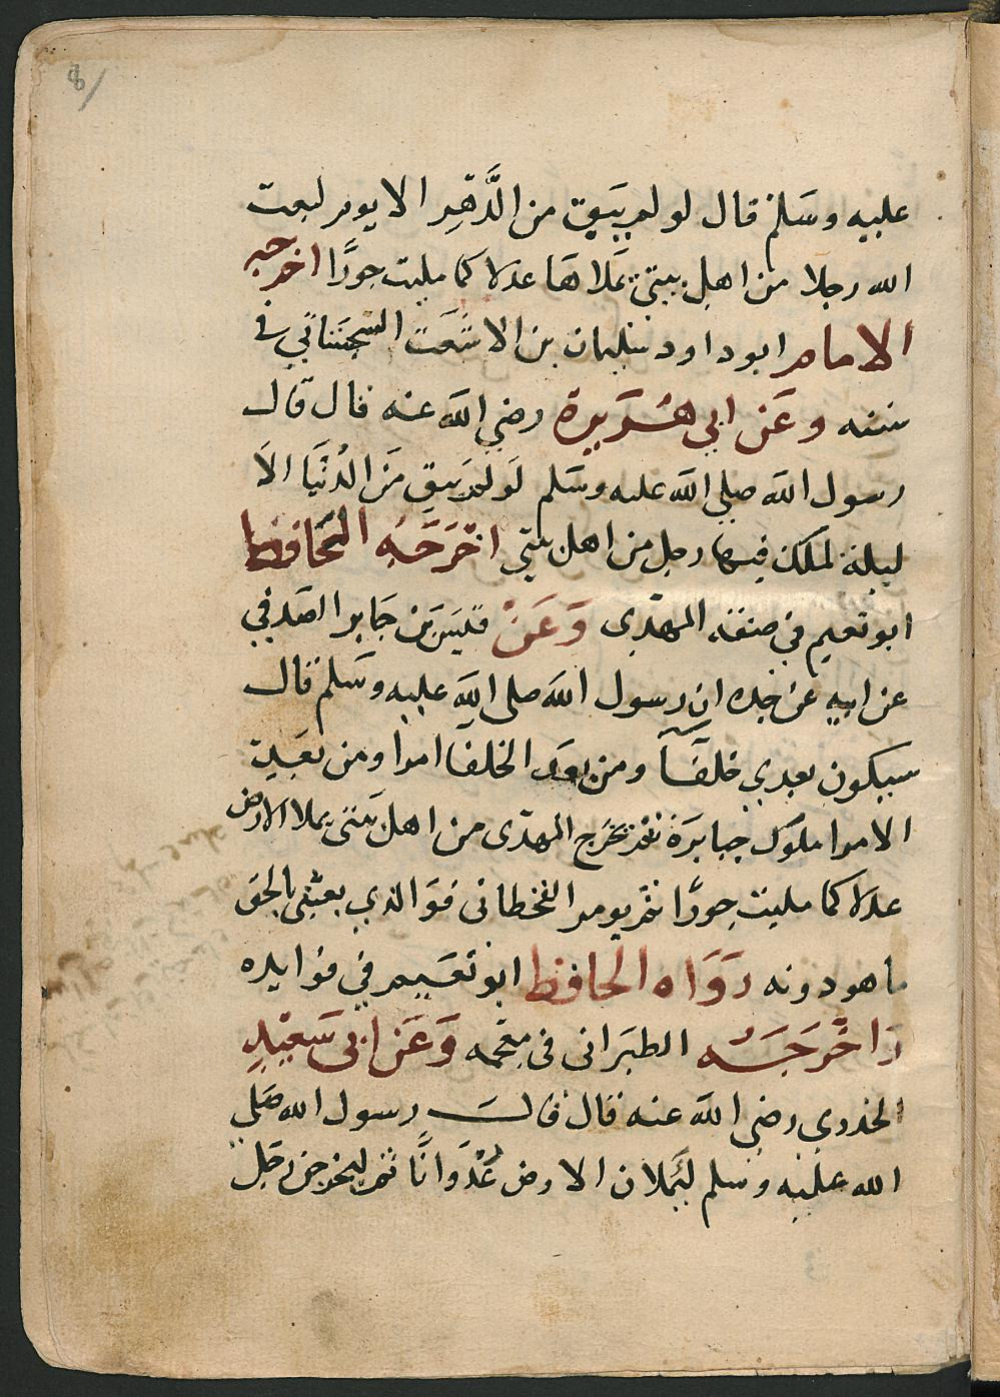 8
عليه وسلم قال لو لم يبق من الدَّهِر الا يوم لبعث
الله رجلا من اهل بيتي يملاها عدلا كما مليت جورًا اخرجه
الامام ابو داود سليمان بن الاشعث السجستاني في
سننه وعن ابي هُرَيرة رضي الله عنه قال قال
رسول الله صلى الله عليه وسلم لَو لم يبق من الدُنْيَا الا
ليلة لملك فيها رجل من اهل بيتي اخْرَجَهُ الحافظ
ابو نعيم في صفة المهدى وَعَنْ قيس بن جابر الصدفي
عن ابيه عن جده ان رسول الله صلى الله عليه وسلم قال
سيكون بعدي خلفآ ومن بعد الخلفا امرا ومن بعد
الامرا ملوك جبابرة ثم يخرج المهدى من اهل بيتى يملا الارض
عدلا كما مليت جورًا ثم يومر القحطانى فوالذي بعثنى بالحق
ما هو دونه رَوَاه الحافظ ابو نعيم في فوايده
وَاخْرَجَهُ الطبرانى فى معجمه وَعَن ابى سَعِيْدٍ
الخدري رضي الله عنه قال قالــ رسول الله صلى
الله عليه وسلم ليُملان الارض عُدْوَانًا ثم ليخرجن رجل